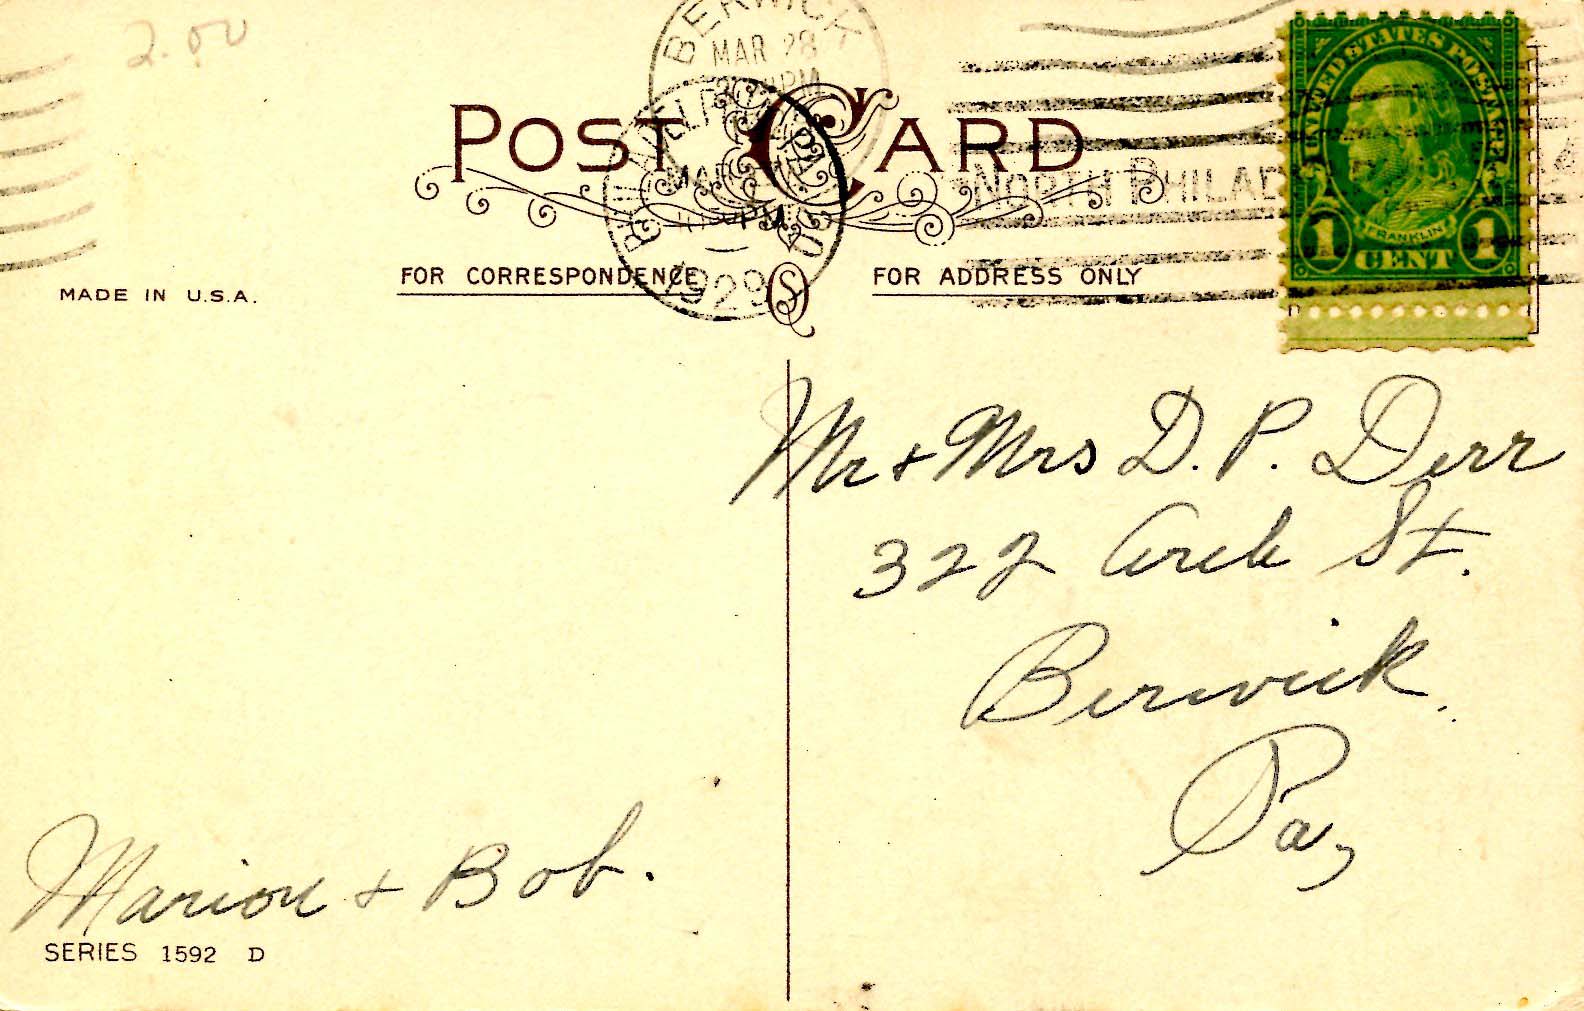 2.00
BERWICK
MAR 28
PM
PHILADELPHIA, PA.
MAR
1929
NORTH PHILAD
UNITED STATES POSTAGE
FRANKLIN
1 CENT 1
POST CARD
FOR CORRESPONDENCE
FOR ADDRESS ONLY
MADE IN U.S.A.
Mr + Mrs D. P. Derr
322 Arch St.
Berwick.
Pa,
Marion + Bob.
SERIES 1592 D